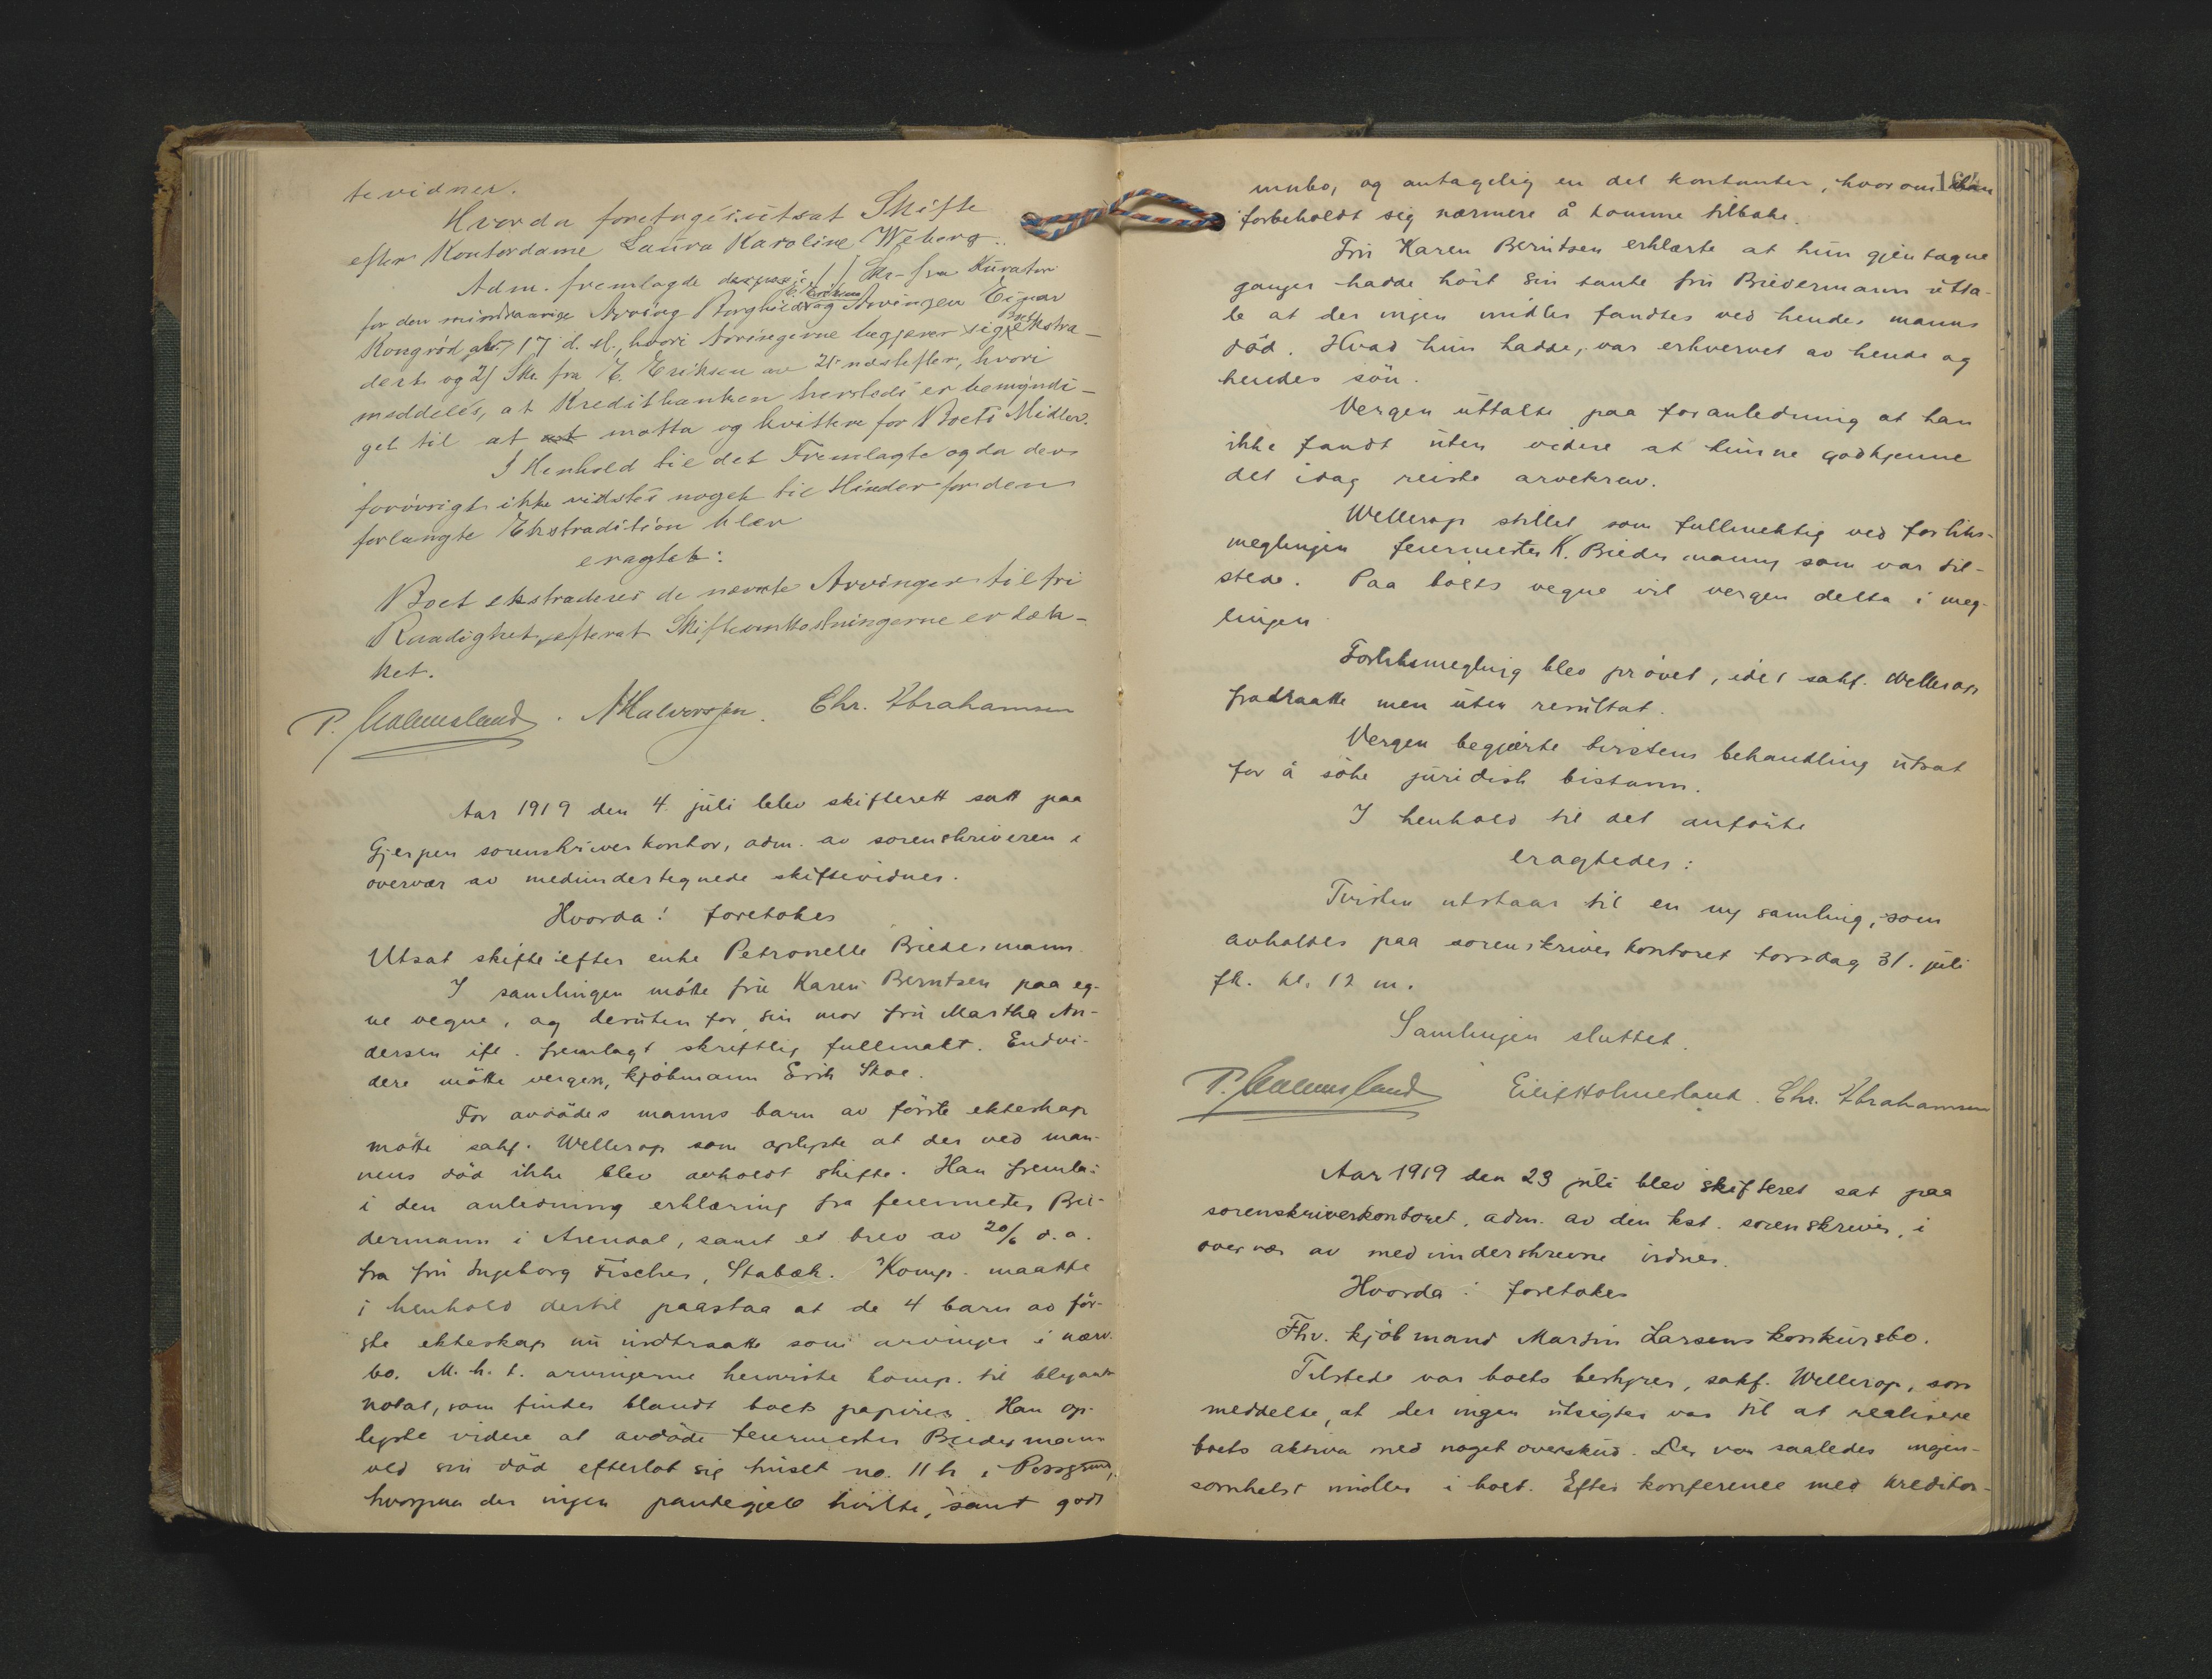 tevidner.
Hvorda foretoges: utsat Skifte
efter Kontordame Laura Karoline Weborg.
Adm. fremlagde 1/ Skr. fra Kurator
E. Eriksen
for den mindreaarige Arving Borghild og Arvingen Einar
Kongröd av 17 d. M., hvori Arvingerne begjærer sig Boet ekstra-
dert og 2/ Skr. fra E. Eriksen av 21 næstefter, hvori
meddeles, at Kreditbanken hersteds er bemyndi-
get til at motta og kvittere for Boets Midler.
I Henhold til det Fremlagte og da der
forövrigt ikke vidstes noget til Hinder for den
forlangte Ekstradition blev
eragtet:
Boet ekstraderes de nævnte Arvinger til fri
Raadighet, efterat Skifteomkostningerne er dæk-
ket.
P. Holmesland. N Halvorsen. Chr. Abrahamsen
Aar 1919 den 4. juli blev skifterett satt paa
Gjerpen sorenskriverkontor, adm. av sorenskriveren i
overvær av medundertegnede skiftevidner.
Hvorda: foretokes
Utsat skifte efter enke Petronelle Biedermann.
I samlingen mötte fru Karen Berntsen paa eg-
ne vegne, og deruten for sin mor fru Martha An-
dersen ifl. fremlagt skriftlig fullmakt. Endvi-
dere mötte vergen, kjöbmann Erik Skoe.
For avdödes manns barn av förste ekteskap
mötte sakf. Wellerop som oplyste at der ved man-
nens död ikke blev avholdt skifte. Han fremla:
i den anledning erklæring fra feiermester Bie-
dermann i Arendal, samt et brev av 20/6 d.a.
fra fru Ingeborg Fischer, Stabæk. Komp. maatte
i henhold dertil paastaa at de 4 barn av för-
ste ekteskap nu indtraatte som arvinger i nærv.
bo. M.h.t. arvingerne henviste komp. til blyant-
notat, som findes blandt boets papirer. Han op-
lyste videre at avdöde feiermester Biedermann
ved sin död efterlot sig huset no. 11 b i Porsgrund,
hvorpaa der ingen pantegjeld hvilte, samt godt
innbo, og antagelig en del kontanter, hvorom han
forbeholdt sig nærmere å komme tilbake.
Fru Karen Berntsen erklærte at hun gjentagne
ganger hadde hört sin tante fru Biedermann utta-
le at der ingen midler fandtes ved hendes manns
död. Hvad hun hadde, var erhvervet av hende og
hendes sön.
Vergen uttalte paa foranledning at han
ikke fandt uten videre at kunne godkjenne
det idag reiste arvekrav.
Wellerop stillet som fullmektig ved forliks-
meglingen feiermester K. Biedermann, som var til-
stede. Paa boets vegne vil vergen delta i meg-
lingen
Forliksmegling blev prövet, idet sakf. Wellerop
fradraatte men uten resultat.
Vergen begjærte tvistens behandling utsat
for å söke juridisk bistann.
I henhold til det anförte
eragtedes:
Tvisten utstaar til en ny samling, som
avholdes paa sorenskriverkontoret torsdag 31. juli
fk. kl. 12 m.
Samlingen sluttet.
P. Holmesland Eilif Holmesland. Chr. Abrahamsen
Aar 1919 den 23 juli blev skifteret sat paa
sorenskriverkontoret, adm. av den kst. sorenskriver, i
overvær av medunderskrevne vidner.
Hvorda: foretokes
Fhv. kjöbmand Martin Larsens konkursbo.
Tilstede var boets bestyrer, sakf. Wellerop, som
meddelte, at der ingen utsigter var til at realisere
boets aktiva med noget overskud. Der var saaledes ingen-
somhelst midler i boet. Efter konference med kreditor-